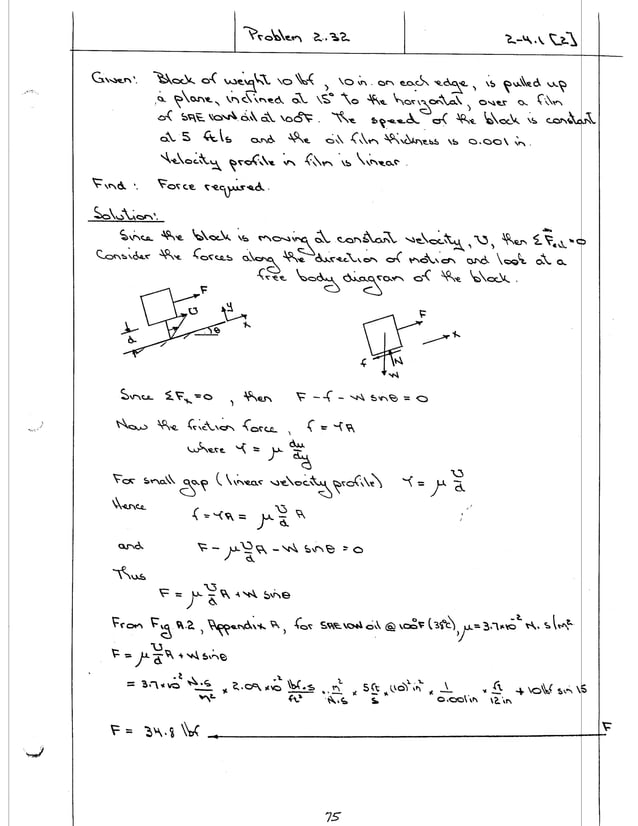 Problem 2.32
2-4.1 [2]
Given: Block of weight 10 lbf, 10 in. on each edge, is pulled up
a plane, inclined at 15° to the horizontal, over a film
of SAE 10W oil at 100°F. The speed of the block is constant
at 5 ft/s and the oil film thickness is 0.001 in.
Velocity profile in film is linear.
Find: Force required.
Solution:
Since the block is moving at constant velocity, U, then ΣF⃗ext = 0
Consider the forces along the direction of motion and look at a
free body diagram of the block.
F
U
y
x
d
θ
F
x
f
N
W
Since ΣFx = 0, then F - f - W sinθ = 0
Now the friction force, f = τA
where τ = μ du/dy
For small gap (linear velocity profile) τ = μ U/d
Hence f = τA = μ U/d A
and F - μ U/d A - W sinθ = 0
Thus
F = μ U/d A + W sinθ
From Fig A.2, Appendix A, for SAE 10W oil @ 100°F (38°C), μ = 3.7×10⁻² N.s/m²
F = μ U/d A + W sinθ
= 3.7×10⁻² N.s/m² × 2.09×10⁻² lbf.s/ft² · m²/N.s × 5 ft/s × (10)² in² × 1/0.001 in × ft/12 in + 10 lbf sin 15
F = 34.8 lbf
F
75